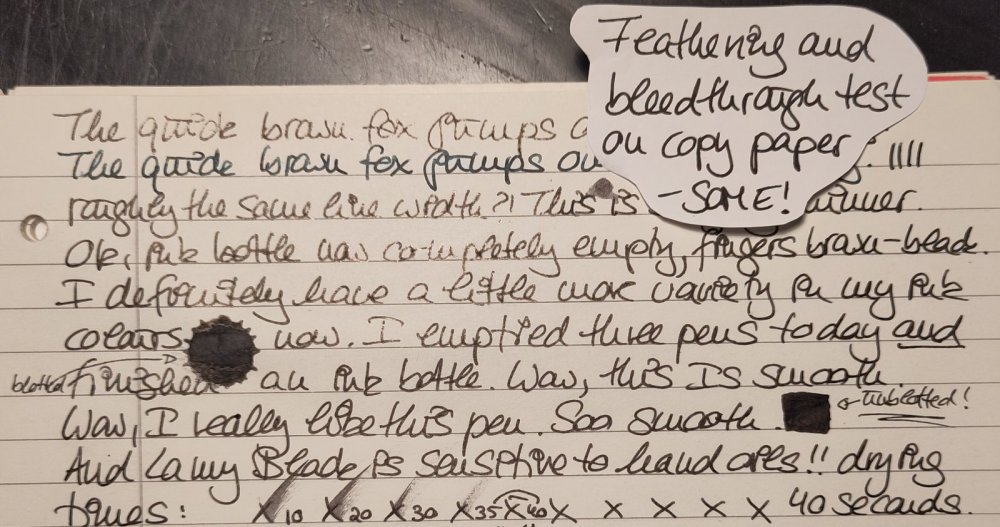 Feathering and
bleedthrough test
on copy paper
-SOME!
The quick brown fox jumps o
The quick brown fox jumps ov
roughly the same line width?! This is
Ok, ink bottle was completely empty, fingers brown-black.
I definitely have a little more variety in my ink
colours now. I emptied three pens today and
blotted finished an ink bottle. Wow, this IS smooth.
Wow, I really like this pen. Soo smooth. unblotted!
And Lamy Black is sensitive to hand oils!! drying
times: X 10 X 20 X 30 X 35 X 40 X X X X X 40 seconds.